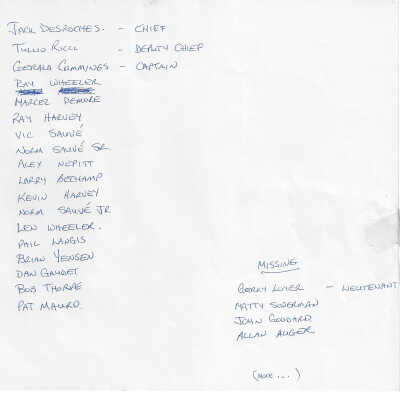 Jack Desroches. - Chief
Tullio Ricci - Deputy Chief
Gerrard Cummings - Captain
Ray Wheeler
Marcel Demore
Ray Harvey
Vic Sauvé
Norm Sauvé Sr
Alex Nepitt
Larry Beecamp
Kevin Harvey
Norm Sauvé Jr
Len Wheeler.
Phil Langis
Brian Yensen
Dan Gaudet
Bob Thorpe
Pat Mauro.
Missing
Gerry Luyer - Lieutenant
Matty Soderman
John Goddard
Allan Auger
(more ....)